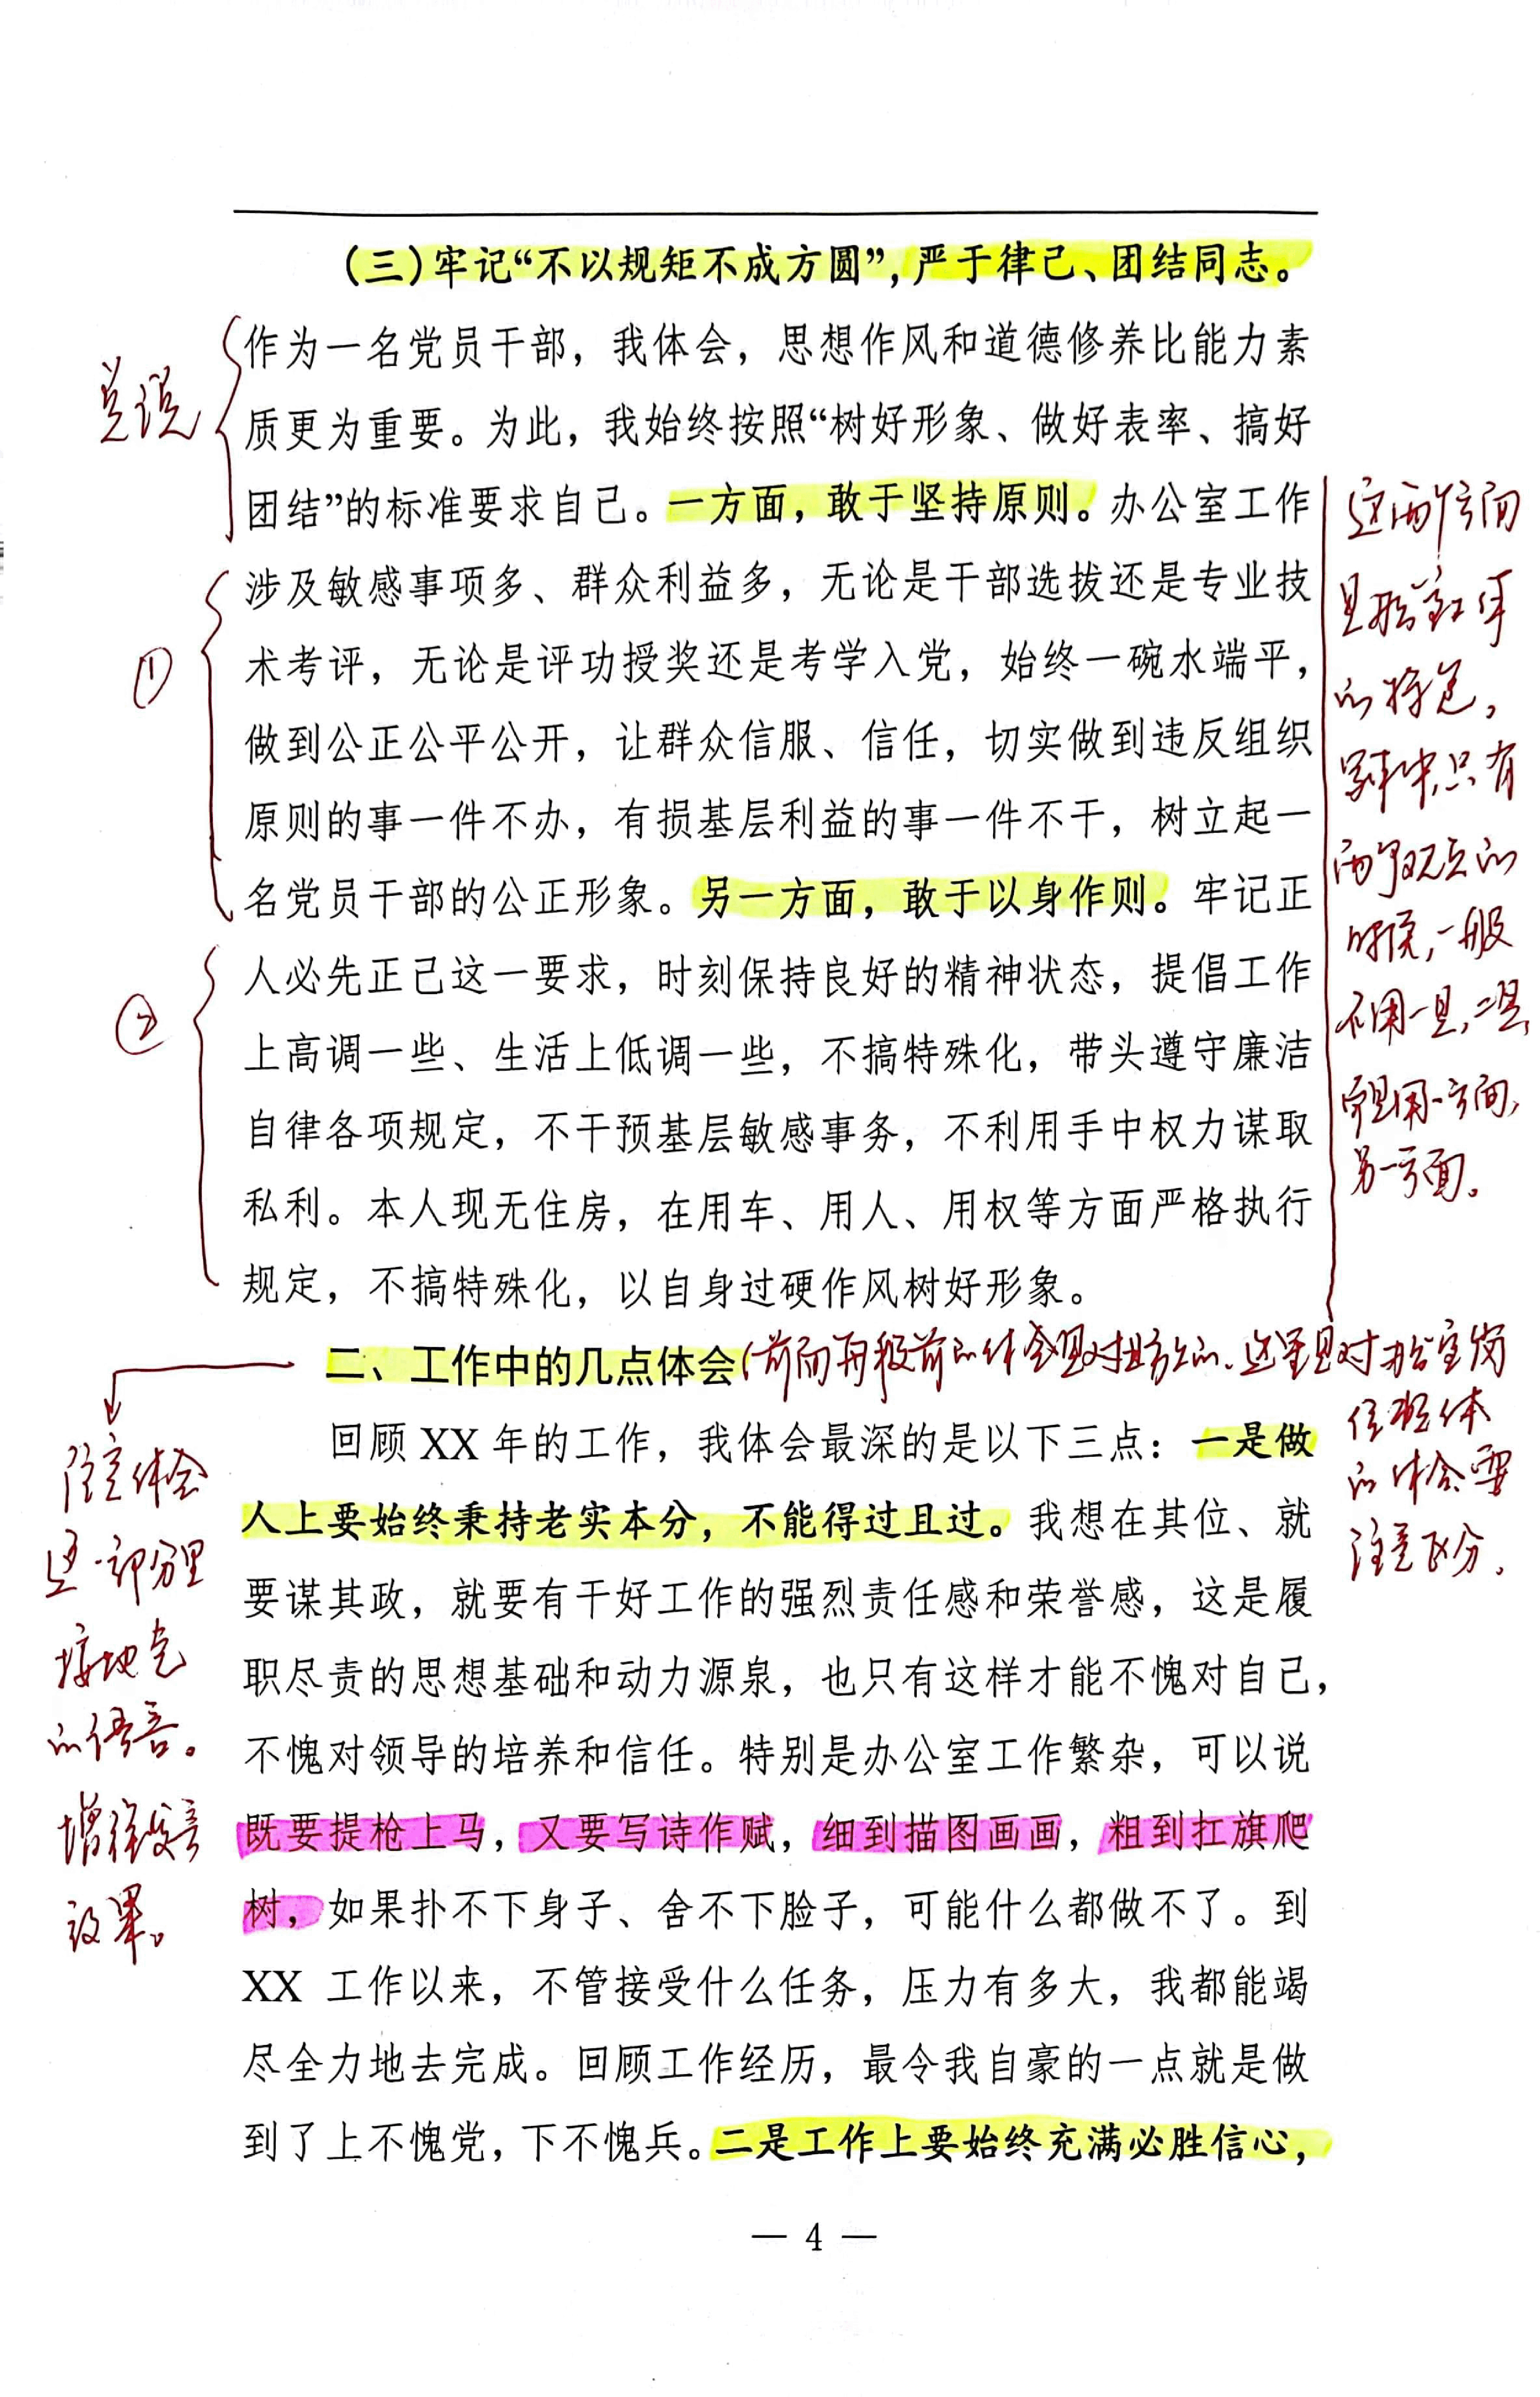 (三)牢记“不以规矩不成方圆”,严于律己、团结同志。
作为一名党员干部，我体会，思想作风和道德修养比能力素
质更为重要。为此，我始终按照“树好形象、做好表率、搞好
团结”的标准要求自己。一方面，敢于坚持原则。办公室工作
涉及敏感事项多、群众利益多，无论是干部选拔还是专业技
术考评，无论是评功授奖还是考学入党，始终一碗水端平，
做到公正公平公开，让群众信服、信任，切实做到违反组织
原则的事一件不办，有损基层利益的事一件不干，树立起一
名党员干部的公正形象。另一方面，敢于以身作则。牢记正
人必先正己这一要求，时刻保持良好的精神状态，提倡工作
上高调一些、生活上低调一些，不搞特殊化，带头遵守廉洁
自律各项规定，不干预基层敏感事务，不利用手中权力谋取
私利。本人现无住房，在用车、用人、用权等方面严格执行
规定，不搞特殊化，以自身过硬作风树好形象。
二、工作中的几点体会
回顾 XX 年的工作，我体会最深的是以下三点：一是做
人上要始终秉持老实本分，不能得过且过。我想在其位、就
要谋其政，就要有干好工作的强烈责任感和荣誉感，这是履
职尽责的思想基础和动力源泉，也只有这样才能不愧对自己，
不愧对领导的培养和信任。特别是办公室工作繁杂，可以说
既要提枪上马，又要写诗作赋，细到描图画画，粗到扛旗爬
树，如果扑不下身子、舍不下脸子，可能什么都做不了。到
XX 工作以来，不管接受什么任务，压力有多大，我都能竭
尽全力地去完成。回顾工作经历，最令我自豪的一点就是做
到了上不愧党，下不愧兵。二是工作上要始终充满必胜信心，
— 4 —
总说
①
②
这两个方面
的特色，
只有
两个观点的
时候，一般
不用一是，二是，
而是用一方面，
另一方面。
这里是对办公室岗
位
的体会要
注意区分。
注意体会
这一部分里
接地气
的语言。
增强发言
效果。